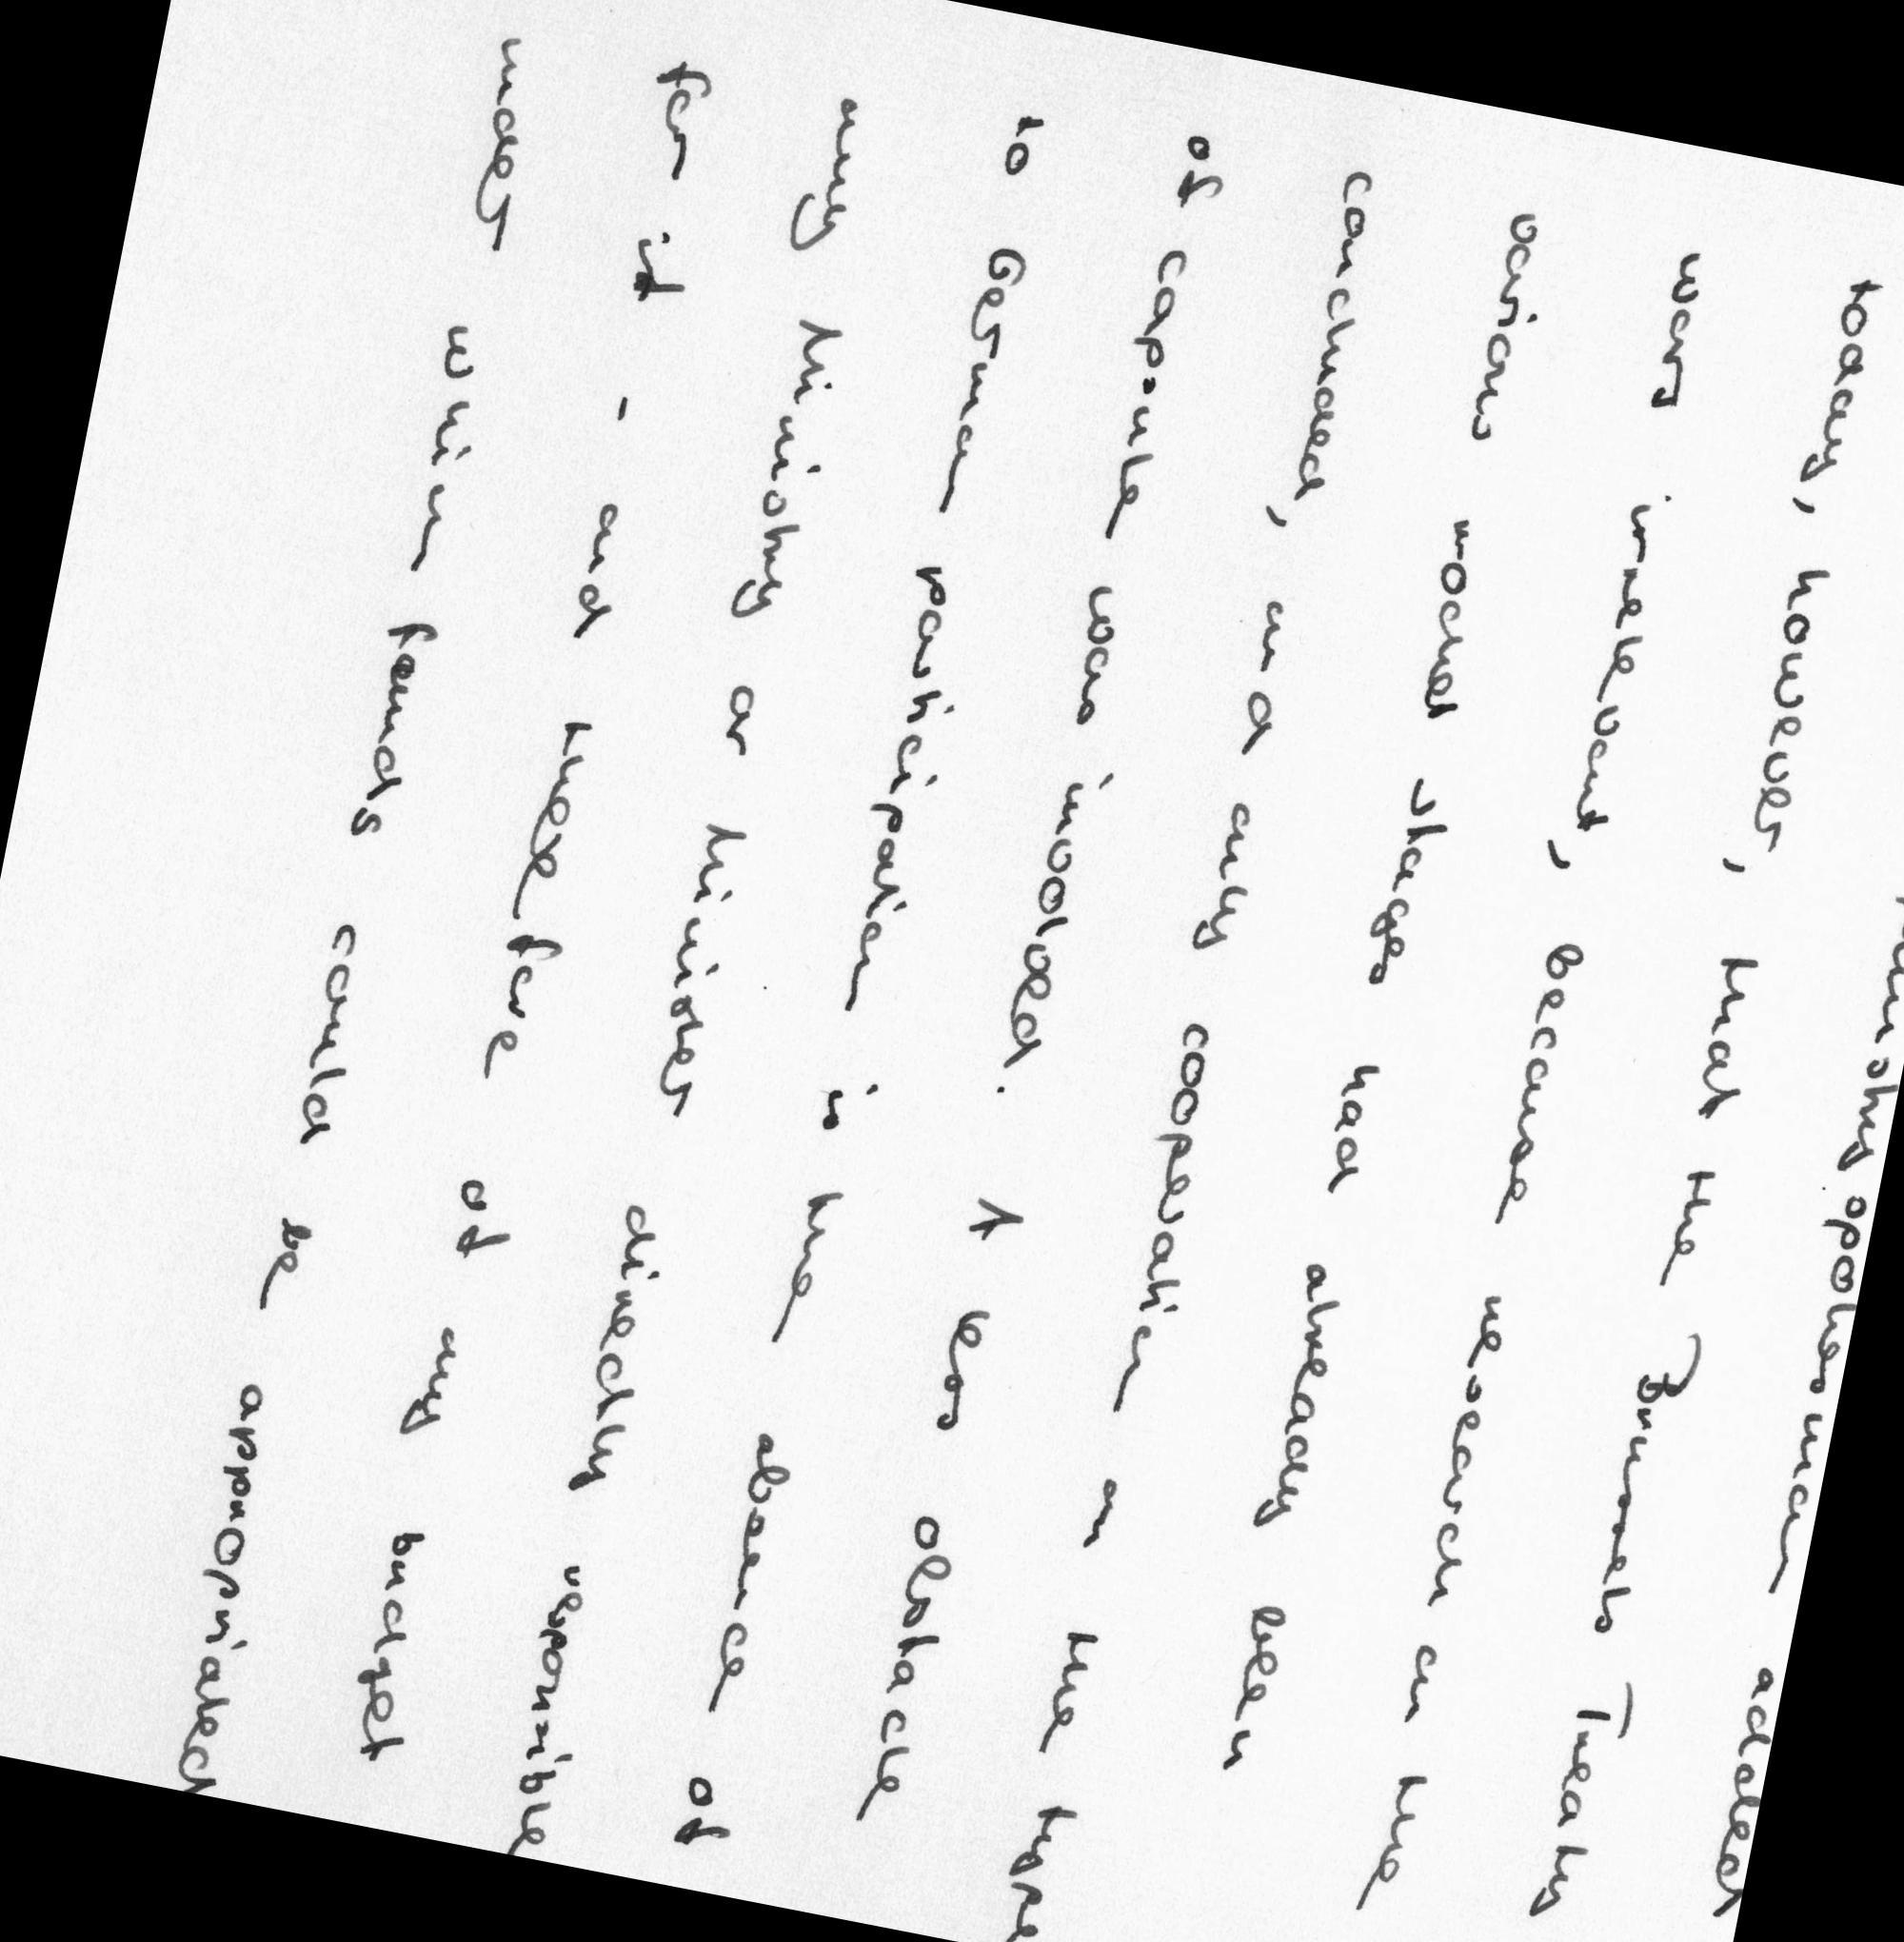 spokesman added
today, however, that the Brussels Treaty
was irrelevant, because research on the
various rocket stages had already been
concluded, and only cooperation on the type
of capsule was involved. A less obstacle
to German participation is the absence of
any Ministry or Minister directly responsible
for it - and therefore of any budget
under funds could be appropriated